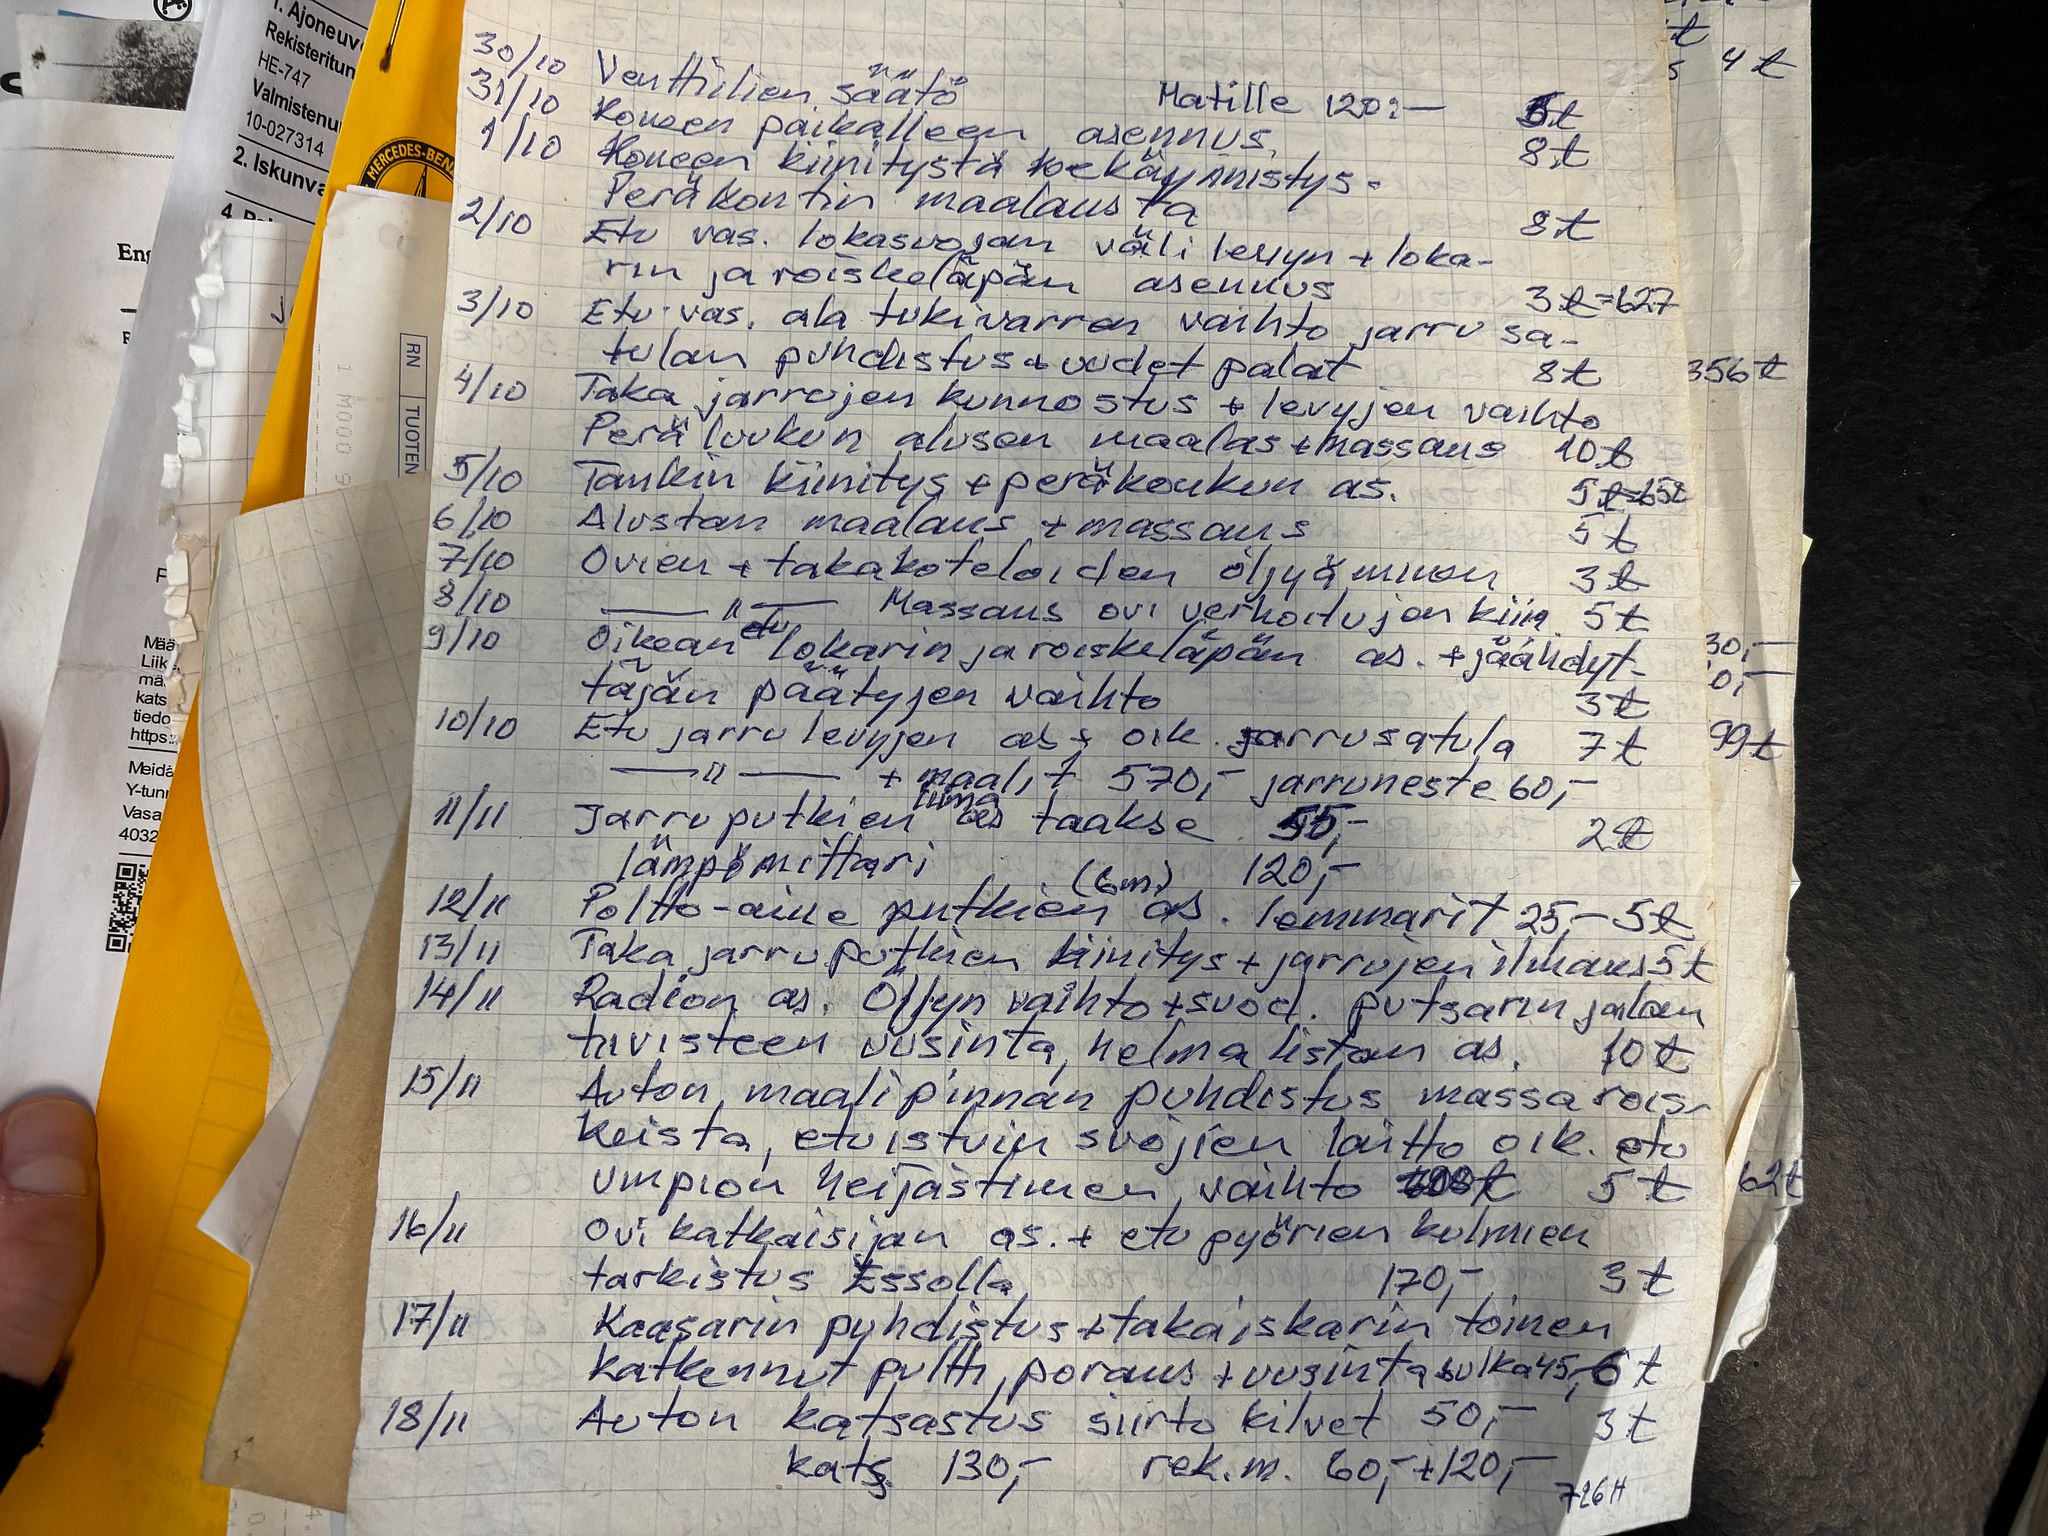 1. Ajoneuv
Rekisteritun
HE-747
Valmistenu
10-027314
2. Iskunva
MERCEDES-BEN
Eng
RN TUOTEN
Mää
Liik
mä
kats
tiedo
https:
Meidä
Y-tunn
Vasa
4032
30/10 Venttiilien säätö Matille 120:— 5t
31/10 Koneen paikalleen asennus, 8t
1/10 Koneen kiinitystä koekäynnistys-
Peräkontin maalausta 8t
2/10 Etu vas. lokasuojan väli levyn + loka-
rin ja roiskeläpän asennus 3t=627
3/10 Etu vas. ala tukivarren vaihto jarru sa-
tulan puhdistus + uudet palat 8t
4/10 Taka jarrujen kunnostus + levyjen vaihto
Perä luukun alusen maalas + massaus 10t
5/10 Tankin kiinitys + peräkoukun as. 5t=65t
6/10 Alustan maalaus + massaus 5t
7/10 Ovien + takakoteloiden öljyäminen 3t
8/10 —— " —— Massaus ovi verhoilujen kiin. 5t
9/10 Oikean etu lokarin ja roiskeläpän as. + jäähdyt-
täjän päätyjen vaihto 3t
10/10 Etu jarru levyjen as + oik. jarrusatula 7t
—— " —— + maalit 570,- jarruneste 60,-
11/11 Jarruputkien as taakse 55,- 2t
lämpömittari 120,-
12/11 Poltto-aine putkien (6m) as. lemmarit 25,- 5t
13/11 Taka jarruputkien kiinitys + jarrujen ilmaus 5t
14/11 Radion as. Öljyn vaihto + suod. putsarin jalan
tiivisteen uusinta, helma listan as. 10t
15/11 Auton maalipinnan puhdistus massa rois-
keista, etuistuin suojien laitto oik. etu
umpion heijastimen vaihto 5t
16/11 Ovi katkaisijan as. + etu pyörien kulmien
tarkistus Essolla 170,- 3t
17/11 Kaasarin puhdistus + takaiskarin toinen
katkennut pultti, poraus + uusinta sulka 45,- 6t
18/11 Auton katsastus siirto kilvet 50,- 3t
kats 130,- rek.m. 60,- + 120,-
726H
4t
356t
30,-
0,-
99t
62t